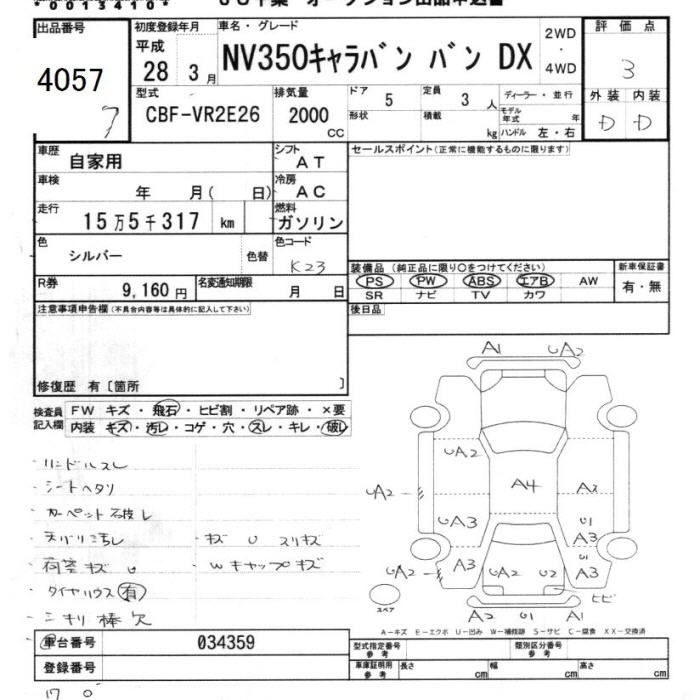 *0013410*
出品番号
4057
7
初度登録年月
平成
28 3月
車名・グレード
NV350キャラバン バン DX
2WD
・
4WD
評価点
3
型式
CBF-VR2E26
排気量
2000
CC
ドア
5
定員
3 人
ディーラー・並行
形状
積載
kg
モデル年式
年
ハンドル 左・右
外装 内装
D D
車歴
自家用
シフト
AT
セールスポイント(正常に機能するものに限ります)
車検
年 月( 日)
冷房
AC
走行
15万5千317 km
燃料
ガソリン
色
シルバー
色替
色コード
K23
装備品 (純正品に限り○をつけてください)
新車保証書
PS PW ABS エアB AW
SR ナビ TV カワ
有・無
R券
9,160 円
名変通知期限
月 日
後日品
注意事項申告欄(不具合内容等は具体的に記入して下さい)
修復歴 有〔箇所 〕
検査員
記入欄
FW キズ・飛石・ヒビ割・リペア跡・×要
内装 キズ・汚レ・コゲ・穴・スレ・キレ・破レ
・ハンドルスレ
・シートヘタリ
・カーペット破レ
・天バリ汚レ
・キズ U スリキズ
・荷室キズ U
・Wキャップキズ
・タイヤハウス 有
棒欠
A1 UA2
UA2
UA2
A4
A2
UA3
U1
A3
UA2
A3
UA2
U2
U1
A3
ヒビ
スペア
A2 U1 A1
A-キズ E-エクボ U-凹み W-補修跡 S-サビ C-腐食 XX-交換済
車台番号
034359
登録番号
型式指定番号
参考
類別区分番号
参考
車庫証明用
参考
長さ cm 幅 cm 高さ cm
17 0